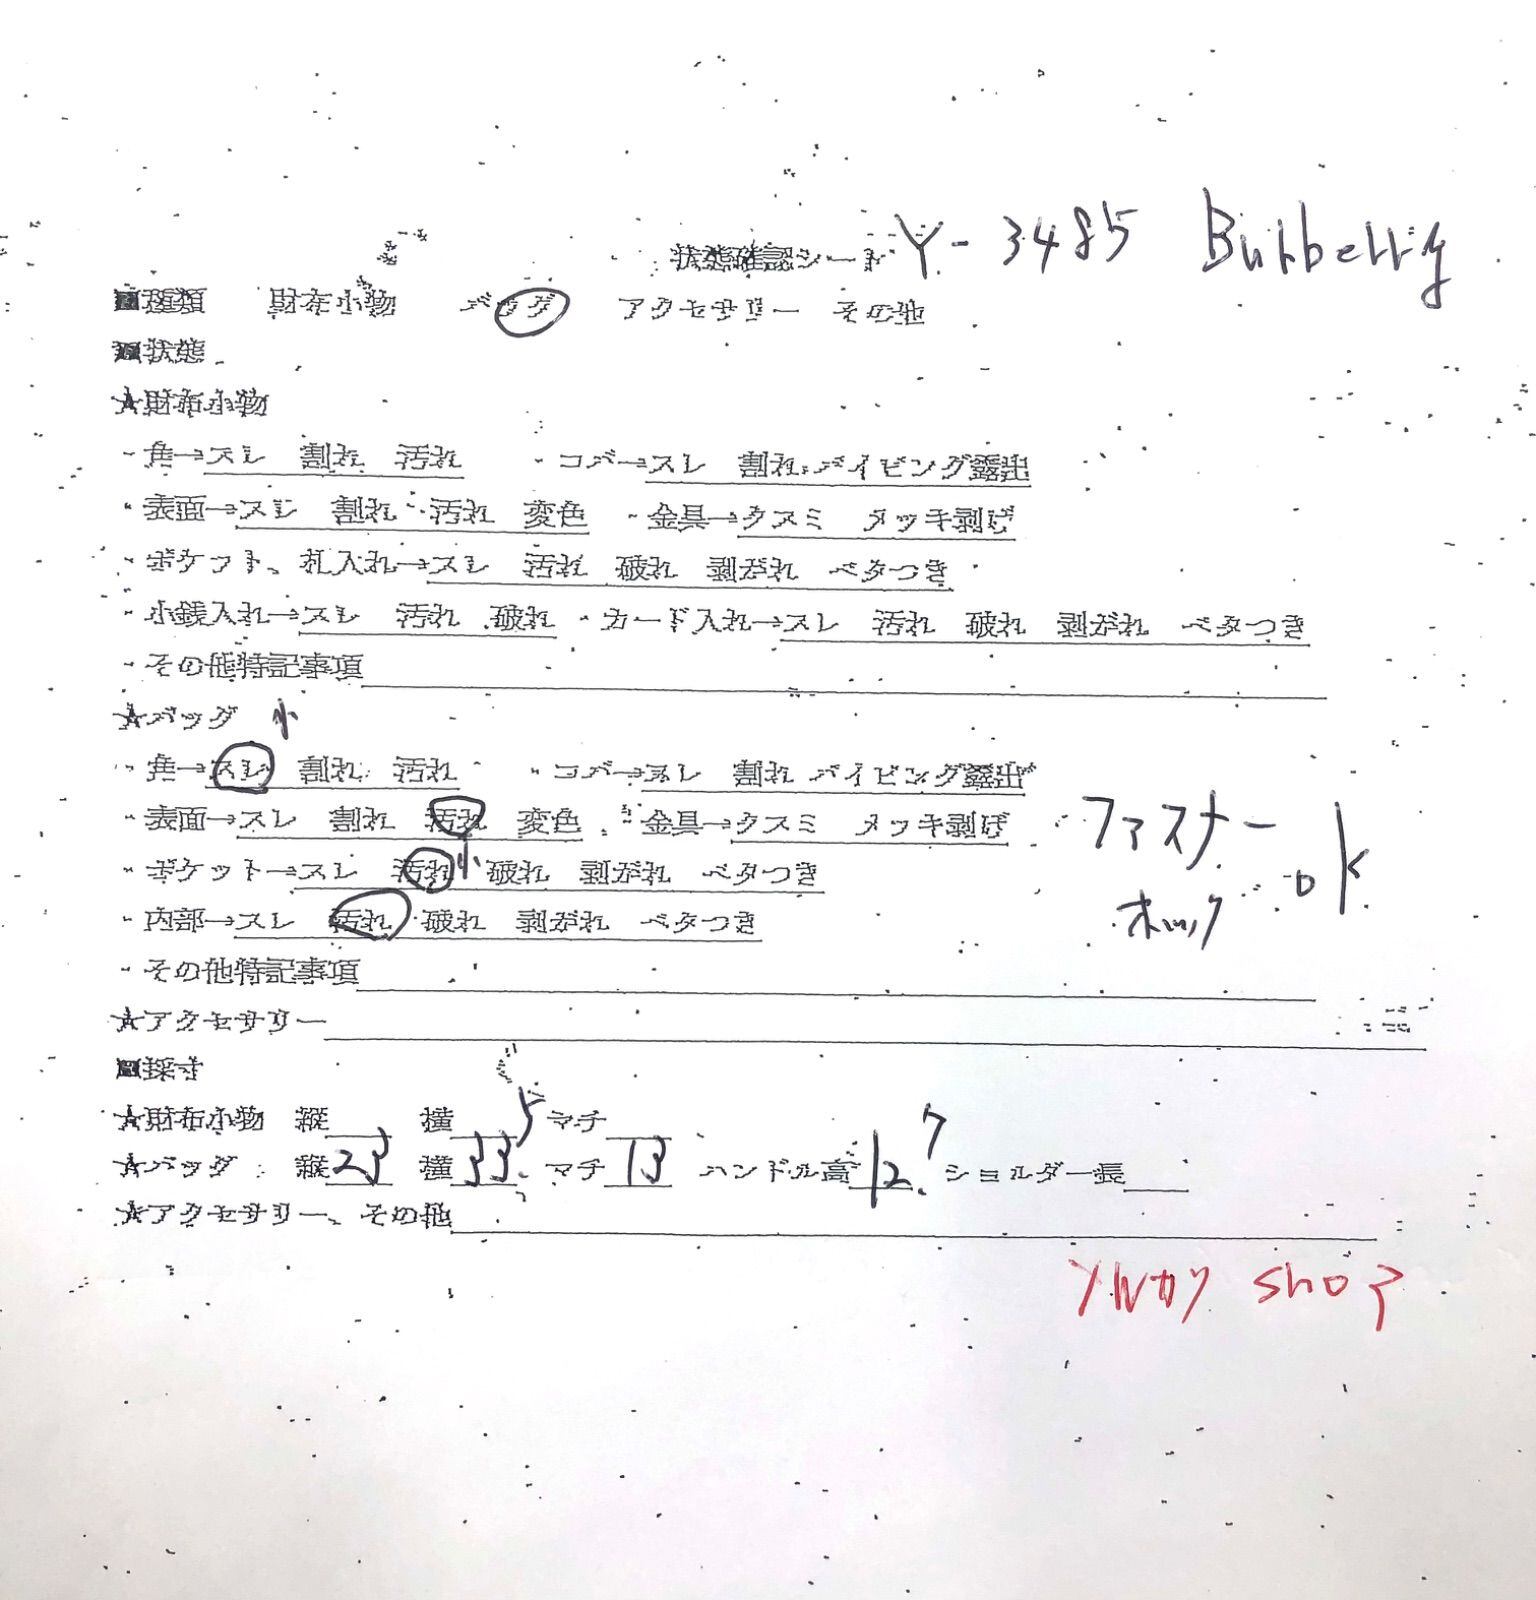 状態確認シート Y-3485 Burberry
■種類 財布小物 バッグ アクセサリー その他
■状態
★財布小物
・角→スレ 割れ 汚れ ・コバ→スレ 割れ パイピング露出
・表面→スレ 割れ 汚れ 変色 ・金具→クスミ メッキ剥げ
・ポケット、札入れ→スレ 汚れ 破れ 剥がれ ベタつき
・小銭入れ→スレ 汚れ 破れ ・カード入れ→スレ 汚れ 破れ 剥がれ ベタつき
・その他特記事項
★バッグ 小
・角→スレ 割れ 汚れ ・コバ→スレ 割れ パイピング露出
・表面→スレ 割れ 汚れ 変色 ・金具→クスミ メッキ剥げ
ファスナー
・ポケット→スレ 汚れ 小 破れ 剥がれ ベタつき
ok
・内部→スレ 汚れ 破れ 剥がれ ベタつき
ホック
・その他特記事項
★アクセサリー
■採寸
★財布小物 縦 横 マチ
★バッグ 縦23 横33.5 マチ13 ハンドル高12.7 ショルダー長
★アクセサリー、その他
shop